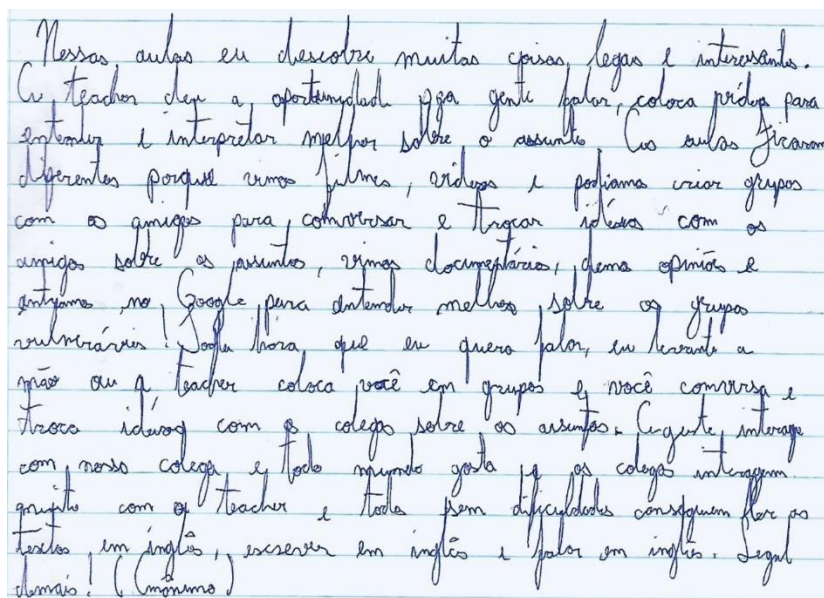 Nessas aulas eu descobri muitas coisas legas e interesantes.
A teacher deu a oportunidade pra gente falar, coloca vídeos para
entender e interpretar melhor sobre o assunto. As aulas ficaram
diferentes porque vimos filmes, vídeos e podiamos criar grupos
com os amigos para conversar e trocar idéias com os
amigos sobre os assuntos, vimos documentários, demos opiniões e
entramos no Google para entender melhor sobre os grupos
vulneráveis! Toda hora que eu quero falar, eu levanto a
mão ou a teacher coloca você em grupos e você conversa e
troca idéias com os colegas sobre os assuntos. A gente interage
com nosso colega e todo mundo gosta e os colegas interagem
muito com a teacher e todos sem dificuldades conseguem ler os
textos em inglês, escrever em inglês e falar em inglês. Legal
demais! (Anônimo)